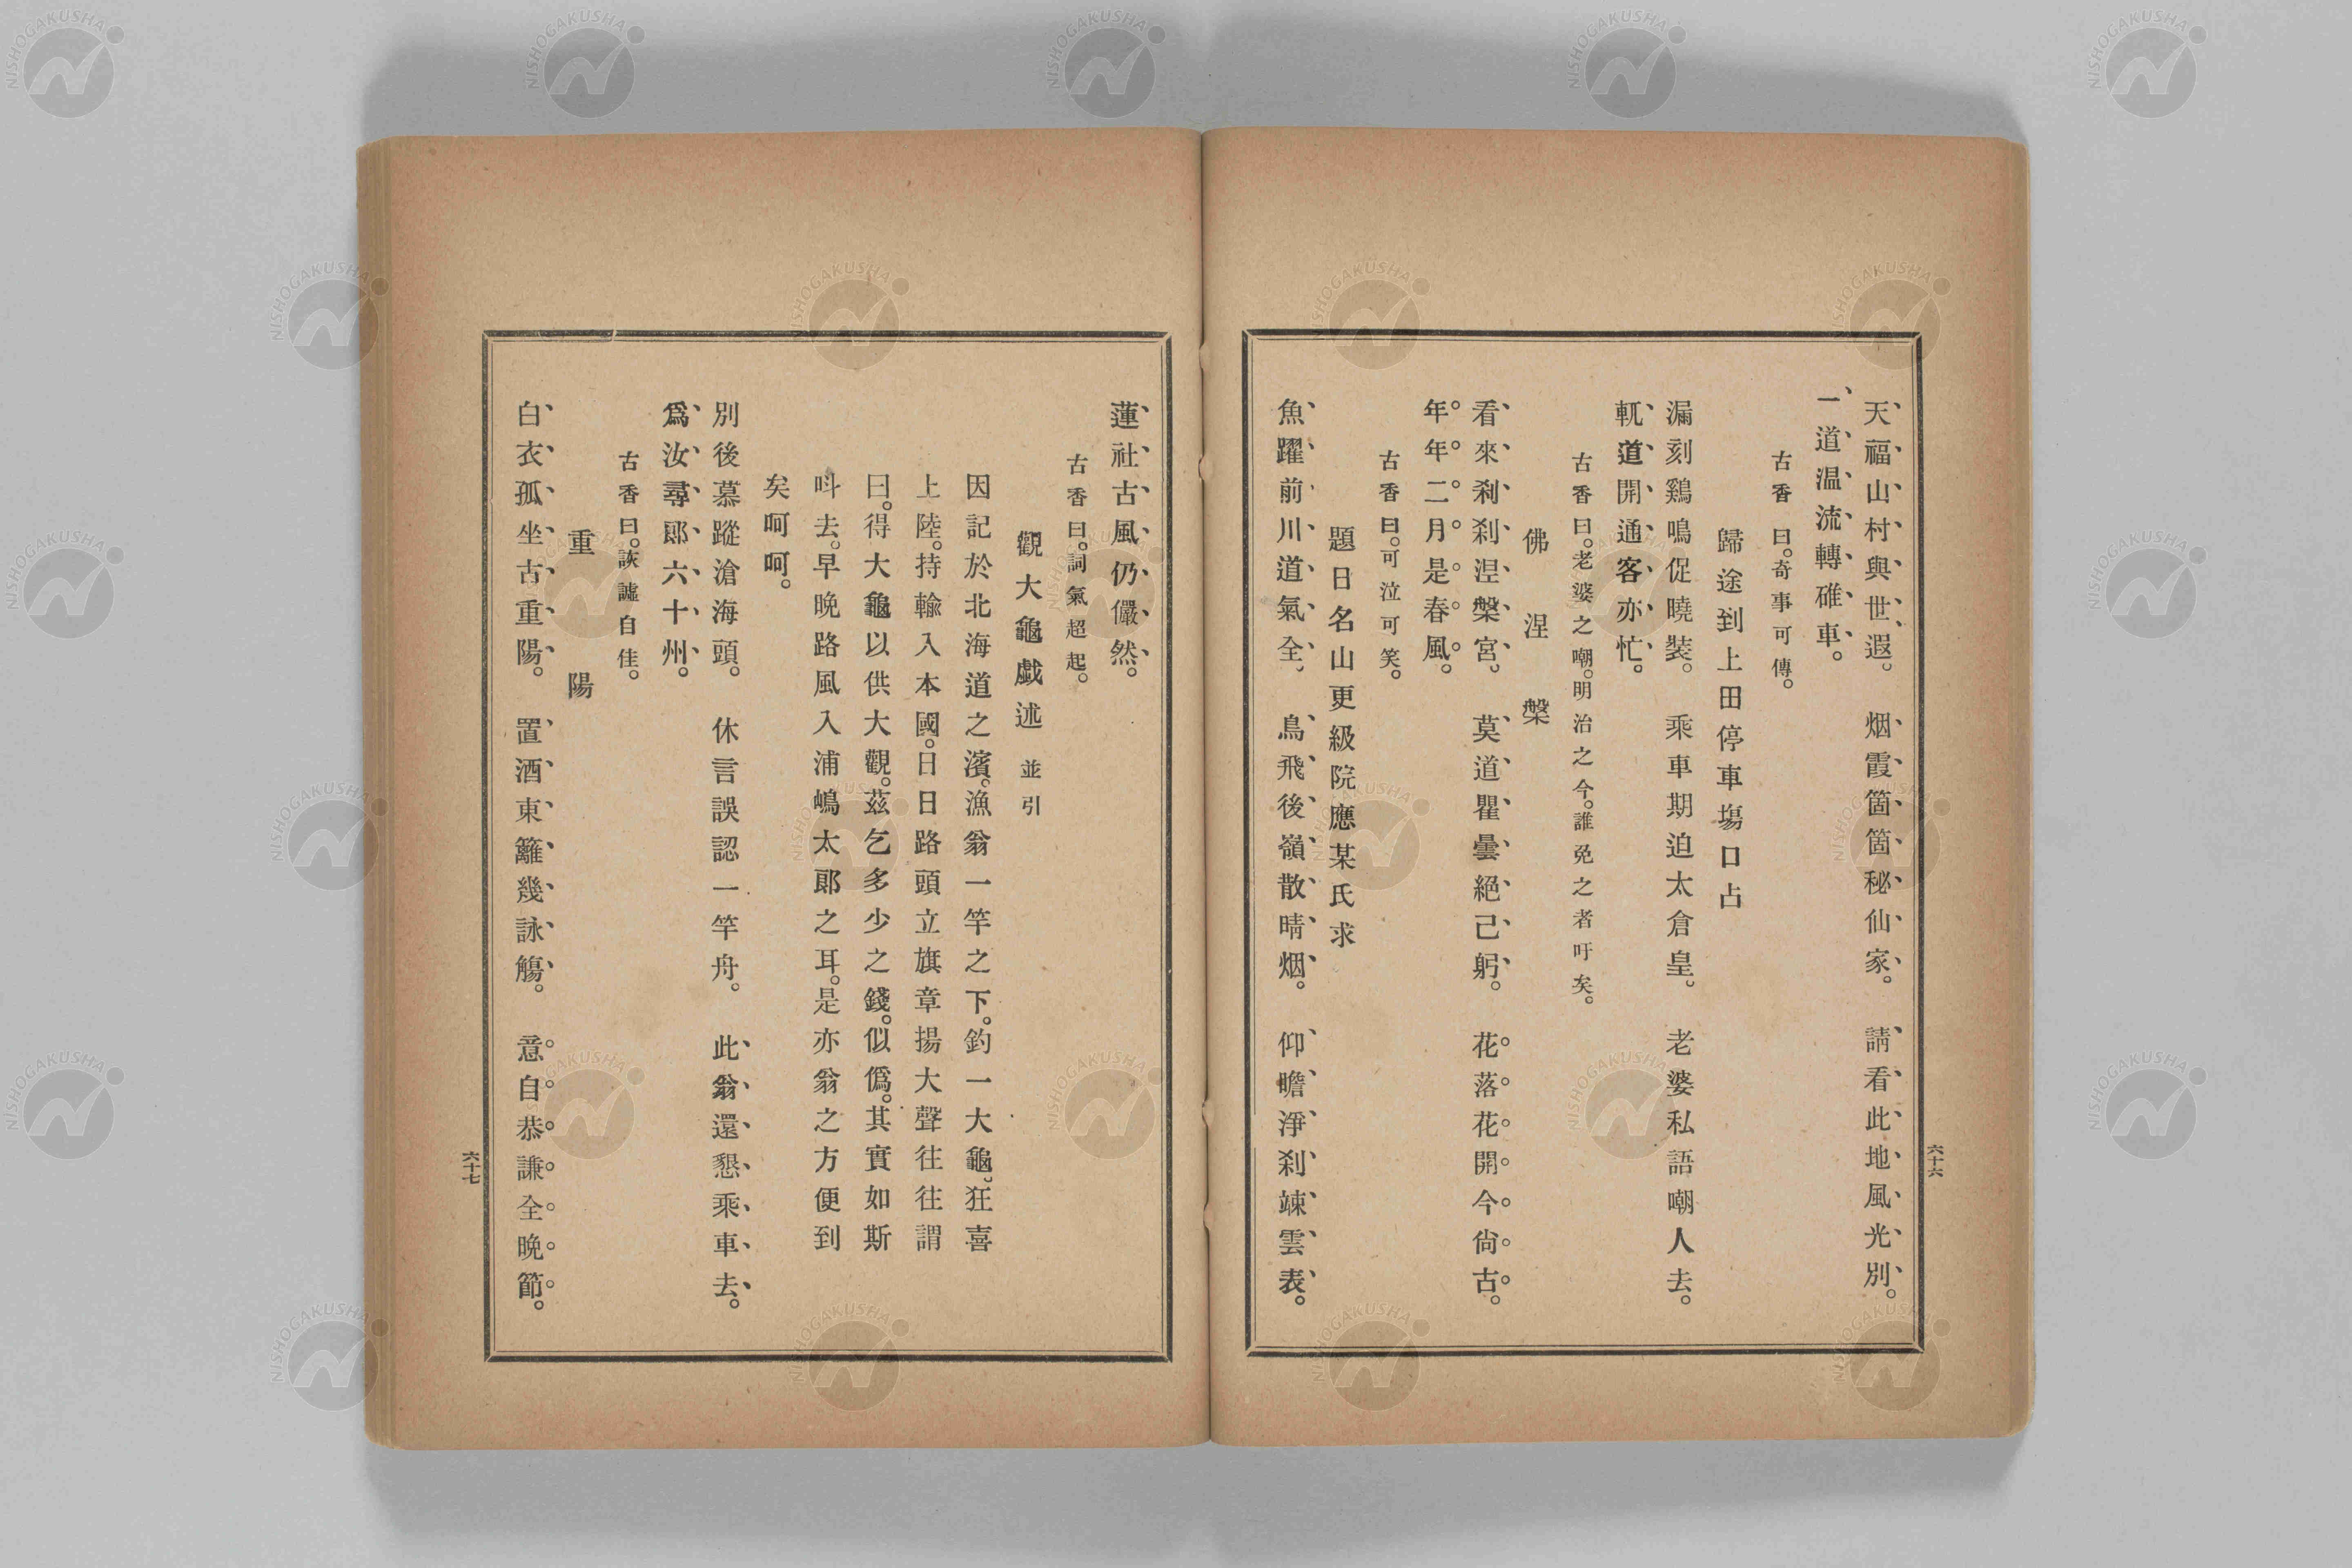 天福山村與世遐。烟霞箇箇秘仙家。請看此地風光別。
一道温流轉碓車。
古香曰。奇事可傳。
歸途到上田停車塲口占
漏刻鷄鳴促曉裝。乘車期迫太倉皇。老婆私語嘲人去。
軏道開通客亦忙。
古香曰。老婆之嘲。明治之今。誰免之者吁矣。
佛涅槃
看來刹刹涅槃宮。莫道瞿曇絕己躬。花落花開今尙古。
年年二月是春風。
古香曰。可泣可笑。
題日名山更級院應某氏求
魚躍前川道氣全。鳥飛後嶺散晴烟。仰瞻淨刹竦雲表。
六十六
蓮社古風仍儼然。
古香曰。詞氣超起。
觀大龜戯述 並引
因記於北海道之濱。漁翁一竿之下。釣一大龜。狂喜
上陸。持輸入本國。日日路頭立旗章揚大聲往往謂
曰。得大龜以供大觀。茲乞多少之錢。似僞。其實如斯
呌去。早晩路風入浦嶋太郎之耳。是亦翁之方便到
矣呵呵。
別後慕蹤滄海頭。休言誤認一竿舟。此翁還懇乘車去。
爲汝尋郎六十州。
古香曰。詼謔自佳。
重陽
白衣孤坐古重陽。置酒東籬幾詠觴。意自恭謙全晩節。
六十七